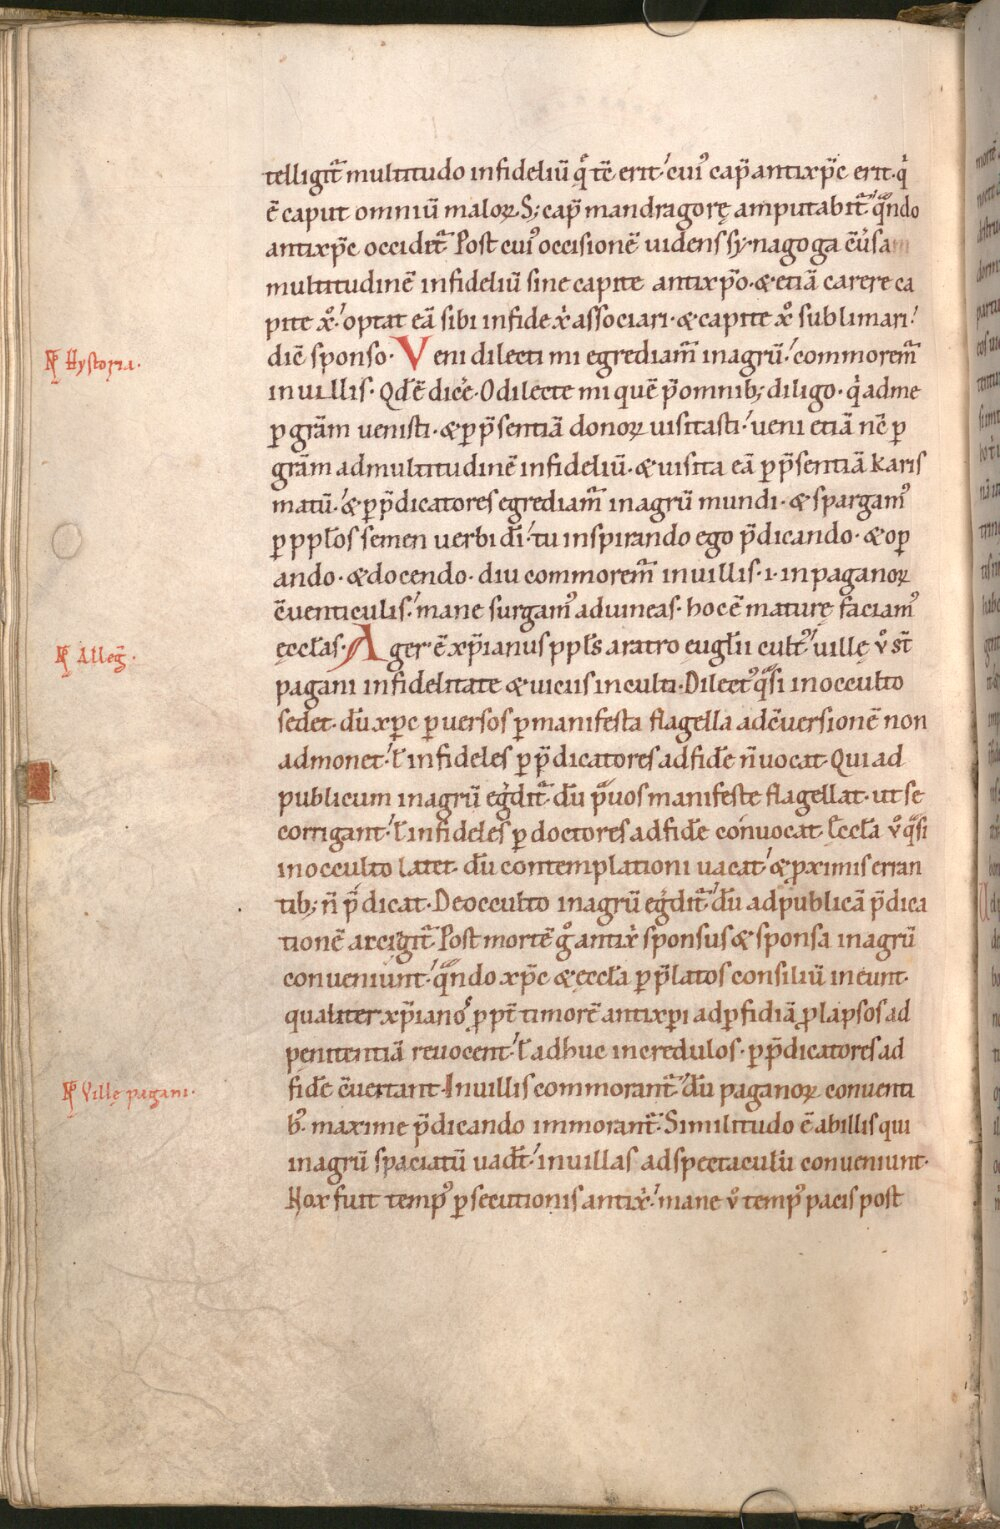 telligit᷑ multitudo infideliū q̊ tc̄ erit.ʼ cuiꝰ cap̄ antixp̄c erit. q̇
ē caput omniū maloꝝ. S; cap̄ mandragorę amputabit᷑.ʼ qᷓndo
antixp̄c occidit᷑. Post cuiꝰ occisionē uidens synagoga c̄uersa
multitudinē infideliū sine capite antixp̄o. & etiā carere ca
pite xͦ.ʼ optat eā sibi in fide xṗi associari. & capite xͦ sublimari.ʼ
Ɲ Hystoria.
diċ sponso. Veni dilecti mi egrediam᷑ in agrū.ʼ commorem᷑
in uillis. Qd̄ ē dicė. O dilecte mi quē p̄ omnib; diligo. q̇ ad me
ꝑ gr̄am uenisti. & ꝑ p̄sentiā donoꝝ uisitasti.ʼ ueni etiā nc̄ ꝑ
gr̄am ad multitudinē infideliū. & uisita eā ꝑ p̄sentiā karis
matū.ʼ & ꝑ p̄dicatores egrediam᷑ in agrū mundi. & spargamꝰ
ꝑ ppłos semen uerbi dī.ʼ tu inspirando ego p̄dicando. & oꝑ
ando. & docendo. diu commorem᷑ in uillis .i. in paganoꝝ
c̄uenticulis.ʼ mane surgamꝰ ad uineas. hoc ē mature faciamꝰ
Ɲ Alleḡ.
ęccłas. Ager ē xp̄ianus ppłs aratro eugłii cultꝰ.ʼ uillę ů st̄
pagani infidelitate & uiciis inculti. Dilectꝰ qᷓsi in occulto
sedet. dū xp̄c ꝑuersos ꝑ manifesta flagella ad c̄uersionē non
admonet.ʼ ł infideles ꝑ p̄dicatores ad fidē n̄ uocat. Qui ad
publicum in agrū eg̊dit᷑. dū pᷓuos manifeste flagellat. ut se
corrigant.ʼ ł infideles ꝑ doctores ad fidē conuocat. Ęccła ů qᷓsi
in occulto latet. dū contemplationi uacat.ʼ & ꝓximis erran
tib; n̄ p̄dicat. De occulto in agrū eg̊dit᷑.ʼ dū ad publicā p̄dica
tionē accigit᷑. Post mortē g̊ antixṗi sponsus & sponsa in agrū
conueniunt.ʼ qᷓndo xp̄c & ęccła ꝑ p̄latos consiliū ineunt.
qualiter xp̄ianos ꝓpt̄ timorē antixp̄i ad ꝑfidiā ꝓlapsos ad
penitentiā reuocent.ʼ ł adhuc incredulos. ꝑ p̄dicatores ad
Ɲ Villę pagani.
fidē c̄uertant. In uillis commorant᷑.ʼ dū paganoꝝ conuenti
bꝰ. maxime p̄dicando immorant᷑. Similitudo ē ab illis qui
in agrū spaciatū uadt̄.ʼ in uillas ad spectaculū conueniunt.
Nox fuit tempꝰ ꝑsecutionis antixṗi.ʼ mane ů tempꝰ pacis post